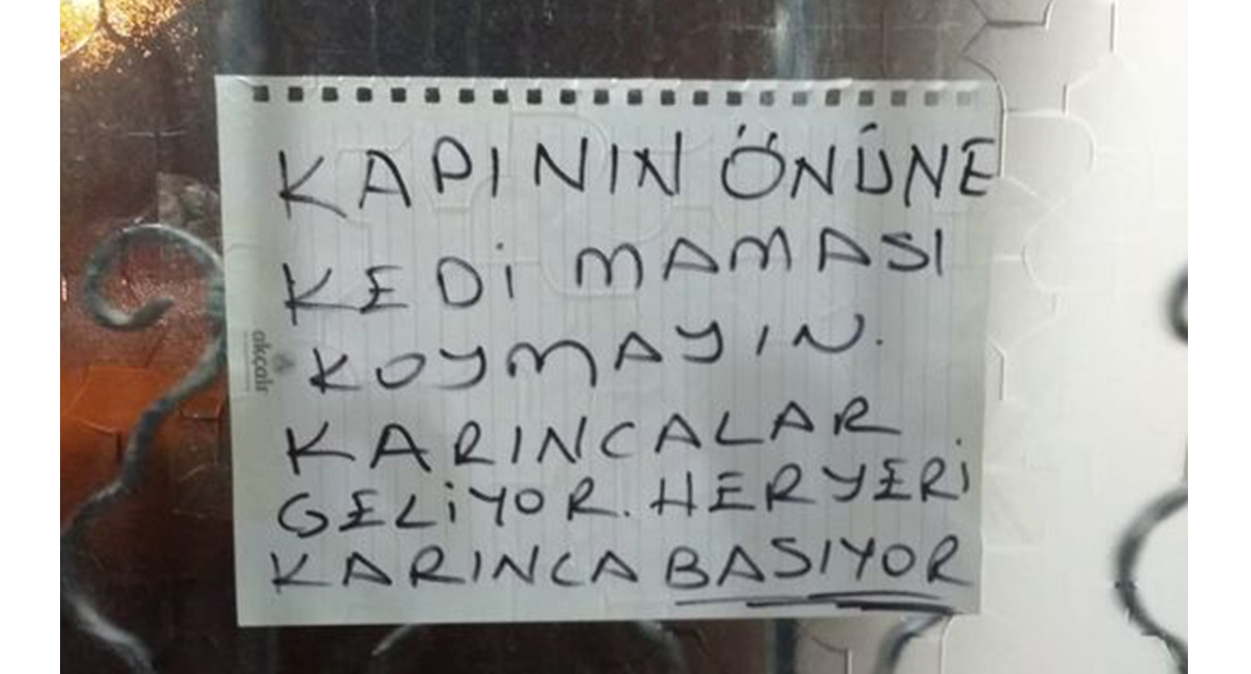 KAPININ ÖNÜNE
KEDİ MAMASI
KOYMAYIN.
KARINCALAR
GELİYOR. HERYERİ
KARINCA BASIYOR
akçalı